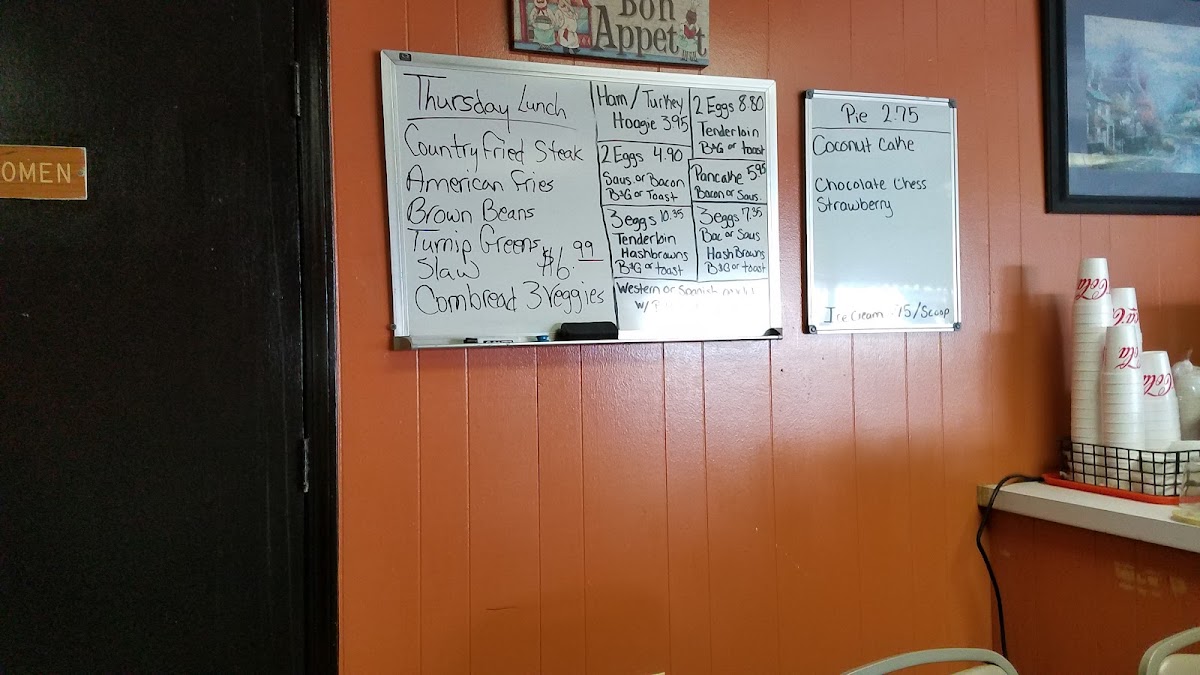 Bon
Appetit
WOMEN
Thursday Lunch
Country Fried Steak
American Fries
Brown Beans
Turnip Greens
Slaw $6.99
Cornbread 3 Veggies
Ham / Turkey
Hoogie 3.95
2 Eggs 4.90
Saus. or Bacon
B&G or Toast
3 eggs 10.35
Tenderloin
Hashbrowns
B&G or toast
2 Eggs 8.80
Tenderloin
B&G or toast
Pancake 5.95
Bacon or Saus.
3 eggs 7.35
Bac or Saus
Hash Browns
B&G or toast
Western or Spanish
w/
Pie 2.75
Coconut Cake
Chocolate Chess
Strawberry
Ice Cream .75/Scoop
Cola
ca-Co
Cola
Cola